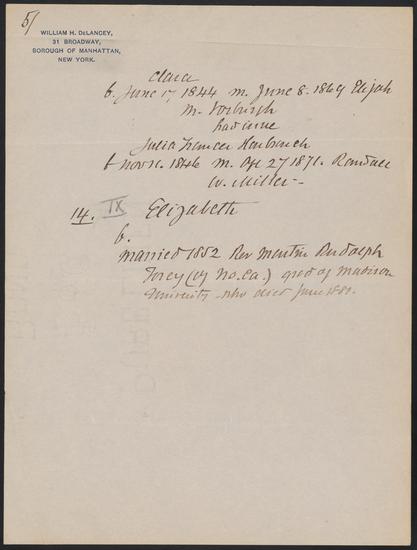 5/
WILLIAM H. DELANCEY,
31 BROADWAY,
BOROUGH OF MANHATTAN,
NEW YORK.
Clara
b. June 1, 1844 m. June 8. 1869 Elijah
M. Vosburgh
had issue
Julia Frances
b Nov 1846 m. Ap 27 1871. Randall
W. Miller-
14. IX Elizabeth
b.
married 1852 Rev Martin Rudolph
(of No. Ca.) grad of Madison
University who died June 1880.